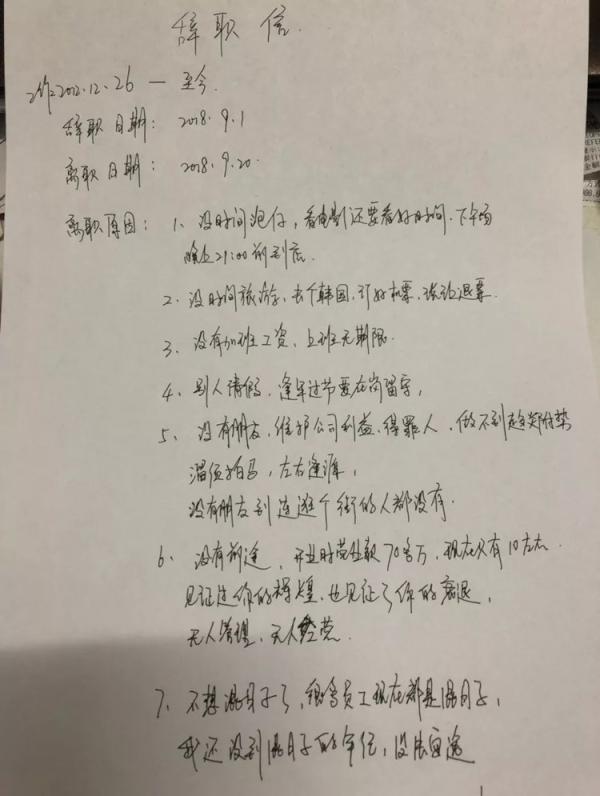 辞职信.
工作2012.12.26 — 至今.
辞职日期: 2018.9.1
离职日期: 2018.9.20.
离职原因: 1、没时间泡仔,看电影还要看好时间.下午场
晚上21:00前到店.
2、没时间旅游,去个韩国,订好机票,被迫退票.
3、没有加班工资,上班无期限.
4、别人请假,逢年过节要在岗留守,
5、没有朋友,维护公司利益,得罪人,做不到趋炎附势
溜须拍马,左右逢源,
没有朋友到连逛个街的人都没有.
6、没有前途,开业时营业额70多万,现在只有10左右.
见证过你的辉煌,也见证了你的衰退,
无人管理,无人经营.
7、不想混日子了,很多员工现在都是混日子,
我还没到混日子的年纪,没法